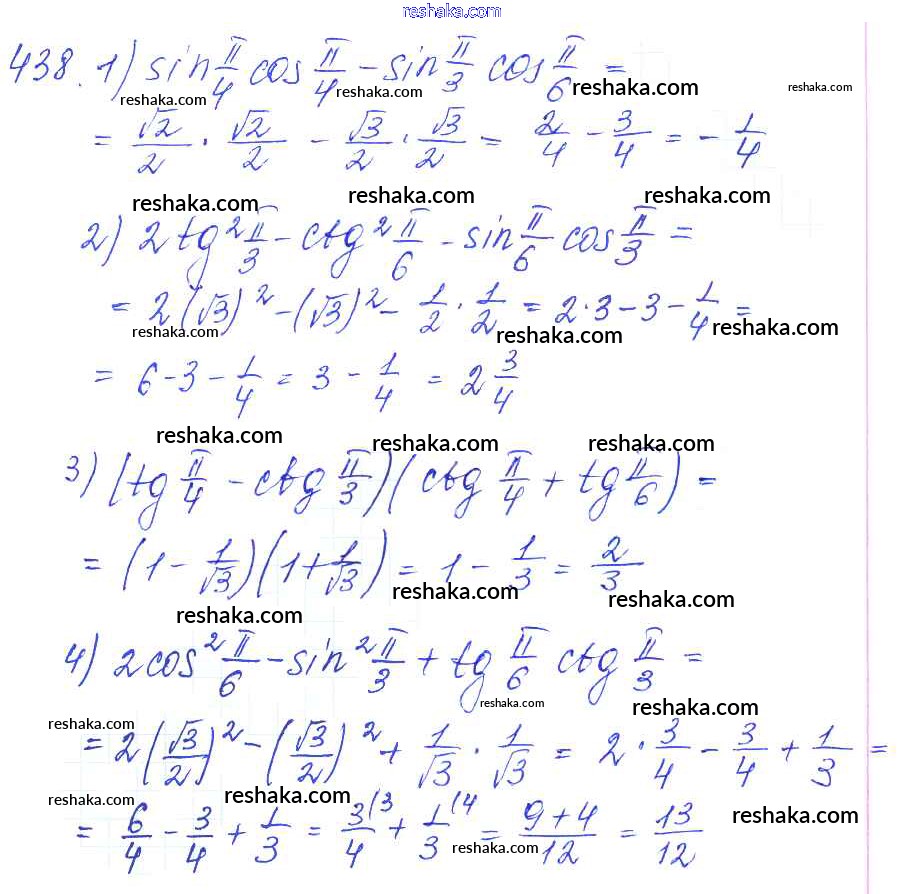 reshaka.com
438. 1) sin π/4 cos π/4 - sin π/3 cos π/6 =
reshaka.com reshaka.com reshaka.com reshaka.com
= √2/2 · √2/2 - √3/2 · √3/2 = 2/4 - 3/4 = - 1/4
reshaka.com reshaka.com reshaka.com
2) 2 tg² π/3 - ctg² π/6 - sin π/6 cos π/3 =
= 2 (√3)² - (√3)² - 1/2 · 1/2 = 2·3 - 3 - 1/4 =
reshaka.com reshaka.com reshaka.com
= 6 - 3 - 1/4 = 3 - 1/4 = 2 3/4
reshaka.com reshaka.com reshaka.com
3) (tg π/4 - ctg π/3)(ctg π/4 + tg π/6) =
= (1 - 1/√3)(1 + 1/√3) = 1 - 1/3 = 2/3
reshaka.com reshaka.com reshaka.com
4) 2cos² π/6 - sin² π/3 + tg π/6 ctg π/3 =
reshaka.com reshaka.com reshaka.com
= 2(√3/2)² - (√3/2)² + 1/√3 · 1/√3 = 2 · 3/4 - 3/4 + 1/3 =
reshaka.com reshaka.com reshaka.com
= 6/4 - 3/4 + 1/3 = 3/4 (3 + 1/3 (4 = 9+4/12 = 13/12
reshaka.com